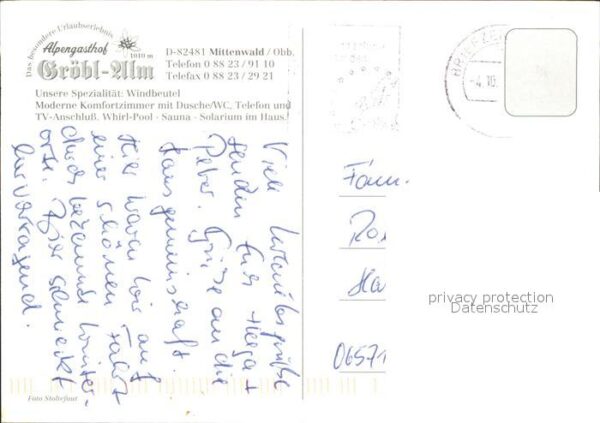 Das besondere Urlaubserlebnis
Alpengasthof
1010 m
Gröbl-Alm
D-82481 Mittenwald / Obb.
Telefon 0 88 23 / 91 10
Telefax 0 88 23 / 29 21
Unsere Spezialität: Windbeutel
Moderne Komfortzimmer mit Dusche/WC, Telefon und
TV-Anschluß. Whirl-Pool - Sauna - Solarium im Haus.
Viele Urlaubsgrüße
senden Euch Helga +
Peter. Grüße an die
Hausgemeinschaft.
Hier waren wir auf
einer schönen Fahrt
durch bekannte Winter-
orte. Hier schmeckt
hervorragend.
Foto Stoltefaut
BRIEFZE
-4.10.
Fam.
Ro
Ha
06571
privacy protection
Datenschutz